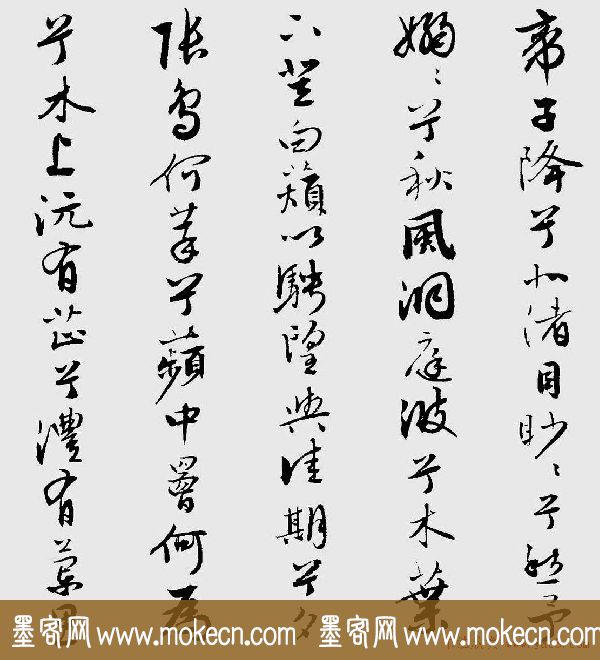 帝子降兮北渚目眇〻兮愁予
嫋〻兮秋風洞庭波兮木葉
下登白薠以騁望與佳期兮夕
張鳥何萃兮蘋中罾何為
兮木上沅有芷兮澧有蘭思
墨客网 www.mokecn.com 墨客网 www.mokecn.com 墨客网 www.mokecn.com